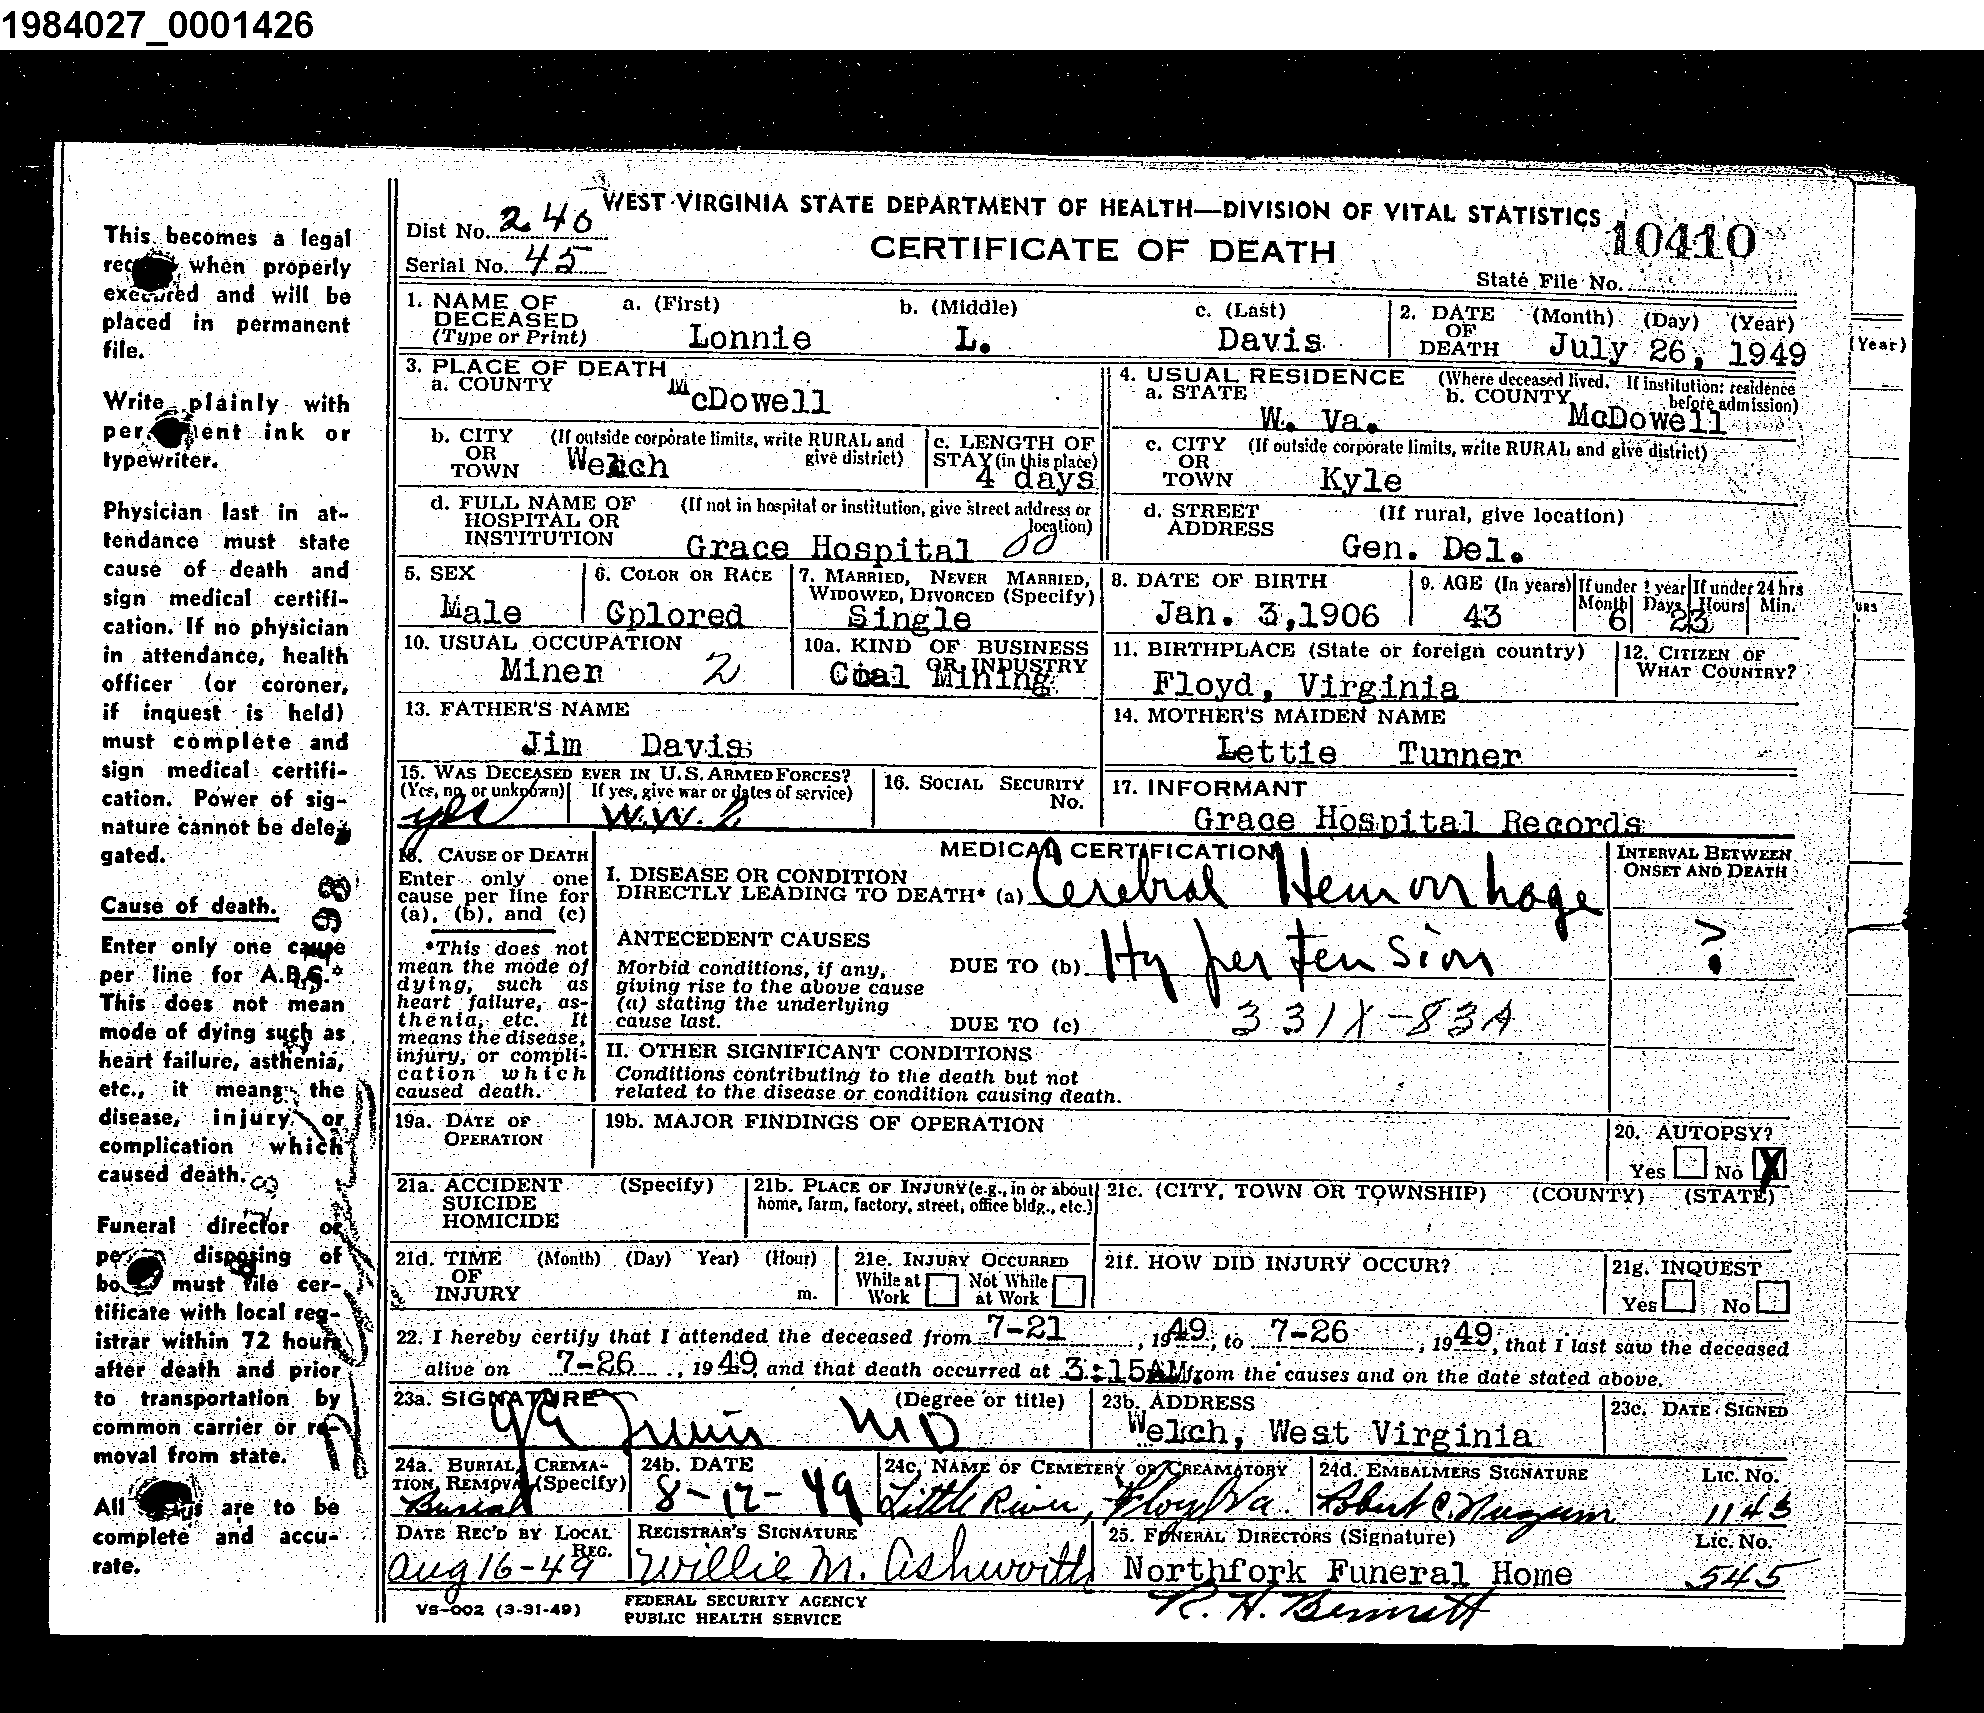 1984027_0001426
This becomes a legal
rec when properly
executed and will be
placed in permanent
file.
Write plainly with
permanent ink or
typewriter.
Physician last in at-
tendance must state
cause of death and
sign medical certifi-
cation. If no physician
in attendance, health
officer (or coroner,
if inquest is held)
must complete and
sign medical certifi-
cation. Power of sig-
nature cannot be dele-
gated.
Cause of death.
Enter only one cause
per line for A.B.C.*
This does not mean
mode of dying such as
heart failure, asthenia,
etc., it means the
disease, injury or
complication which
caused death.
Funeral director or
disposing of
must file cer-
tificate with local reg-
istrar within 72 hours
after death and prior
to transportation by
common carrier or re-
moval from state.
All are to be
complete and accu-
rate.
WEST VIRGINIA STATE DEPARTMENT OF HEALTH—DIVISION OF VITAL STATISTICS
Dist No. 240
Serial No. 45
CERTIFICATE OF DEATH
10410
State File No.
1. NAME OF DECEASED (Type or Print) a. (First) b. (Middle) c. (Last)
Lonnie L. Davis
2. DATE OF DEATH (Month) (Day) (Year)
July 26, 1949
(Year)
3. PLACE OF DEATH
a. COUNTY McDowell
4. USUAL RESIDENCE (Where deceased lived. If institution: residence before admission)
a. STATE W. Va. b. COUNTY McDowell
b. CITY OR TOWN (If outside corporate limits, write RURAL and give district) Welch
c. LENGTH OF STAY (in this place) 4 days
c. CITY OR TOWN (If outside corporate limits, write RURAL and give district) Kyle
d. FULL NAME OF HOSPITAL OR INSTITUTION (If not in hospital or institution, give street address or location) Grace Hospital
d. STREET ADDRESS (If rural, give location) Gen. Del.
5. SEX Male
6. COLOR OR RACE Gplored
7. MARRIED, NEVER MARRIED, WIDOWED, DIVORCED (Specify) Single
8. DATE OF BIRTH Jan. 3,1906
9. AGE (In years) 43 If under 1 year Month 6 Days 23 If under 24 hrs Hours Min.
10. USUAL OCCUPATION Miner 2
10a. KIND OF BUSINESS OR INDUSTRY Coal Mining
11. BIRTHPLACE (State or foreign country) Floyd, Virginia
12. CITIZEN OF WHAT COUNTRY?
13. FATHER'S NAME Jim Davis
14. MOTHER'S MAIDEN NAME Lettie Turner
15. WAS DECEASED EVER IN U.S. ARMED FORCES?
(Yes, no, or unknown) yes If yes, give war or dates of service) W.W. 2
16. SOCIAL SECURITY No.
17. INFORMANT Grace Hospital Records
18. CAUSE OF DEATH
Enter only one
cause per line for
(a), (b), and (c)
*This does not
mean the mode of
dying, such as
heart failure, as-
thenia, etc. It
means the disease,
injury, or compli-
cation which
caused death.
MEDICAL CERTIFICATION
I. DISEASE OR CONDITION
DIRECTLY LEADING TO DEATH* (a) Cerebral Hemorrhage
ANTECEDENT CAUSES
Morbid conditions, if any,
giving rise to the above cause
(a) stating the underlying
cause last.
DUE TO (b) Hypertension
DUE TO (c) 331X-83A
INTERVAL BETWEEN ONSET AND DEATH
?
II. OTHER SIGNIFICANT CONDITIONS
Conditions contributing to the death but not
related to the disease or condition causing death.
19a. DATE OF OPERATION
19b. MAJOR FINDINGS OF OPERATION
20. AUTOPSY?
Yes No X
21a. ACCIDENT SUICIDE HOMICIDE (Specify)
21b. PLACE OF INJURY (e.g., in or about home, farm, factory, street, office bldg., etc.)
21c. (CITY, TOWN OR TOWNSHIP) (COUNTY) (STATE)
21d. TIME OF INJURY (Month) (Day) Year) (Hour) m.
21e. INJURY OCCURRED While at Work Not While at Work
21f. HOW DID INJURY OCCUR?
21g. INQUEST Yes No
22. I hereby certify that I attended the deceased from 7-21, 1949, to 7-26, 1949, that I last saw the deceased
alive on 7-26, 1949, and that death occurred at 3:15AM from the causes and on the date stated above.
23a. SIGNATURE (Degree or title) MD
23b. ADDRESS Welch, West Virginia
23c. DATE SIGNED
24a. BURIAL, CREMA-TION, REMOVAL (Specify) Burial
24b. DATE 8-12-49
24c. NAME OF CEMETERY OR CREAMATORY Little River, Floyd Va.
24d. EMBALMERS SIGNATURE Robert C. Nugum LIC. NO. 1143
DATE REC'D BY LOCAL REG. Aug 16-49
REGISTRAR'S SIGNATURE Willie M. Ashworth
25. FUNERAL DIRECTORS (Signature) Northfork Funeral Home LIC. NO. 545
R. H. Bennett
VS-002 (3-31-49)
FEDERAL SECURITY AGENCY
PUBLIC HEALTH SERVICE